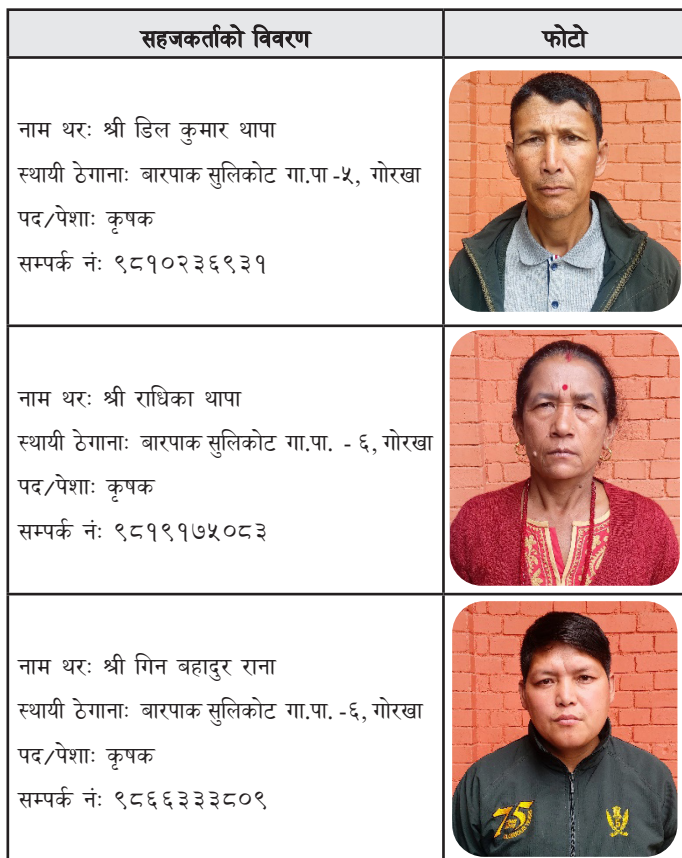 सहजकर्ताको विवरण
फोटो
नाम थरः श्री डिल कुमार थापा
स्थायी ठेगानाः बारपाक सुलिकोट गा.पा -५, गोरखा
पद/पेशाः कृषक
सम्पर्क नंः ९८१०२३६९३१
नाम थरः श्री राधिका थापा
स्थायी ठेगानाः बारपाक सुलिकोट गा.पा. - ६, गोरखा
पद/पेशाः कृषक
सम्पर्क नंः ९८१९१७५०८३
नाम थरः श्री गिन बहादुर राना
स्थायी ठेगानाः बारपाक सुलिकोट गा.पा. -६, गोरखा
पद/पेशाः कृषक
सम्पर्क नंः ९८६६३३३८०९
75